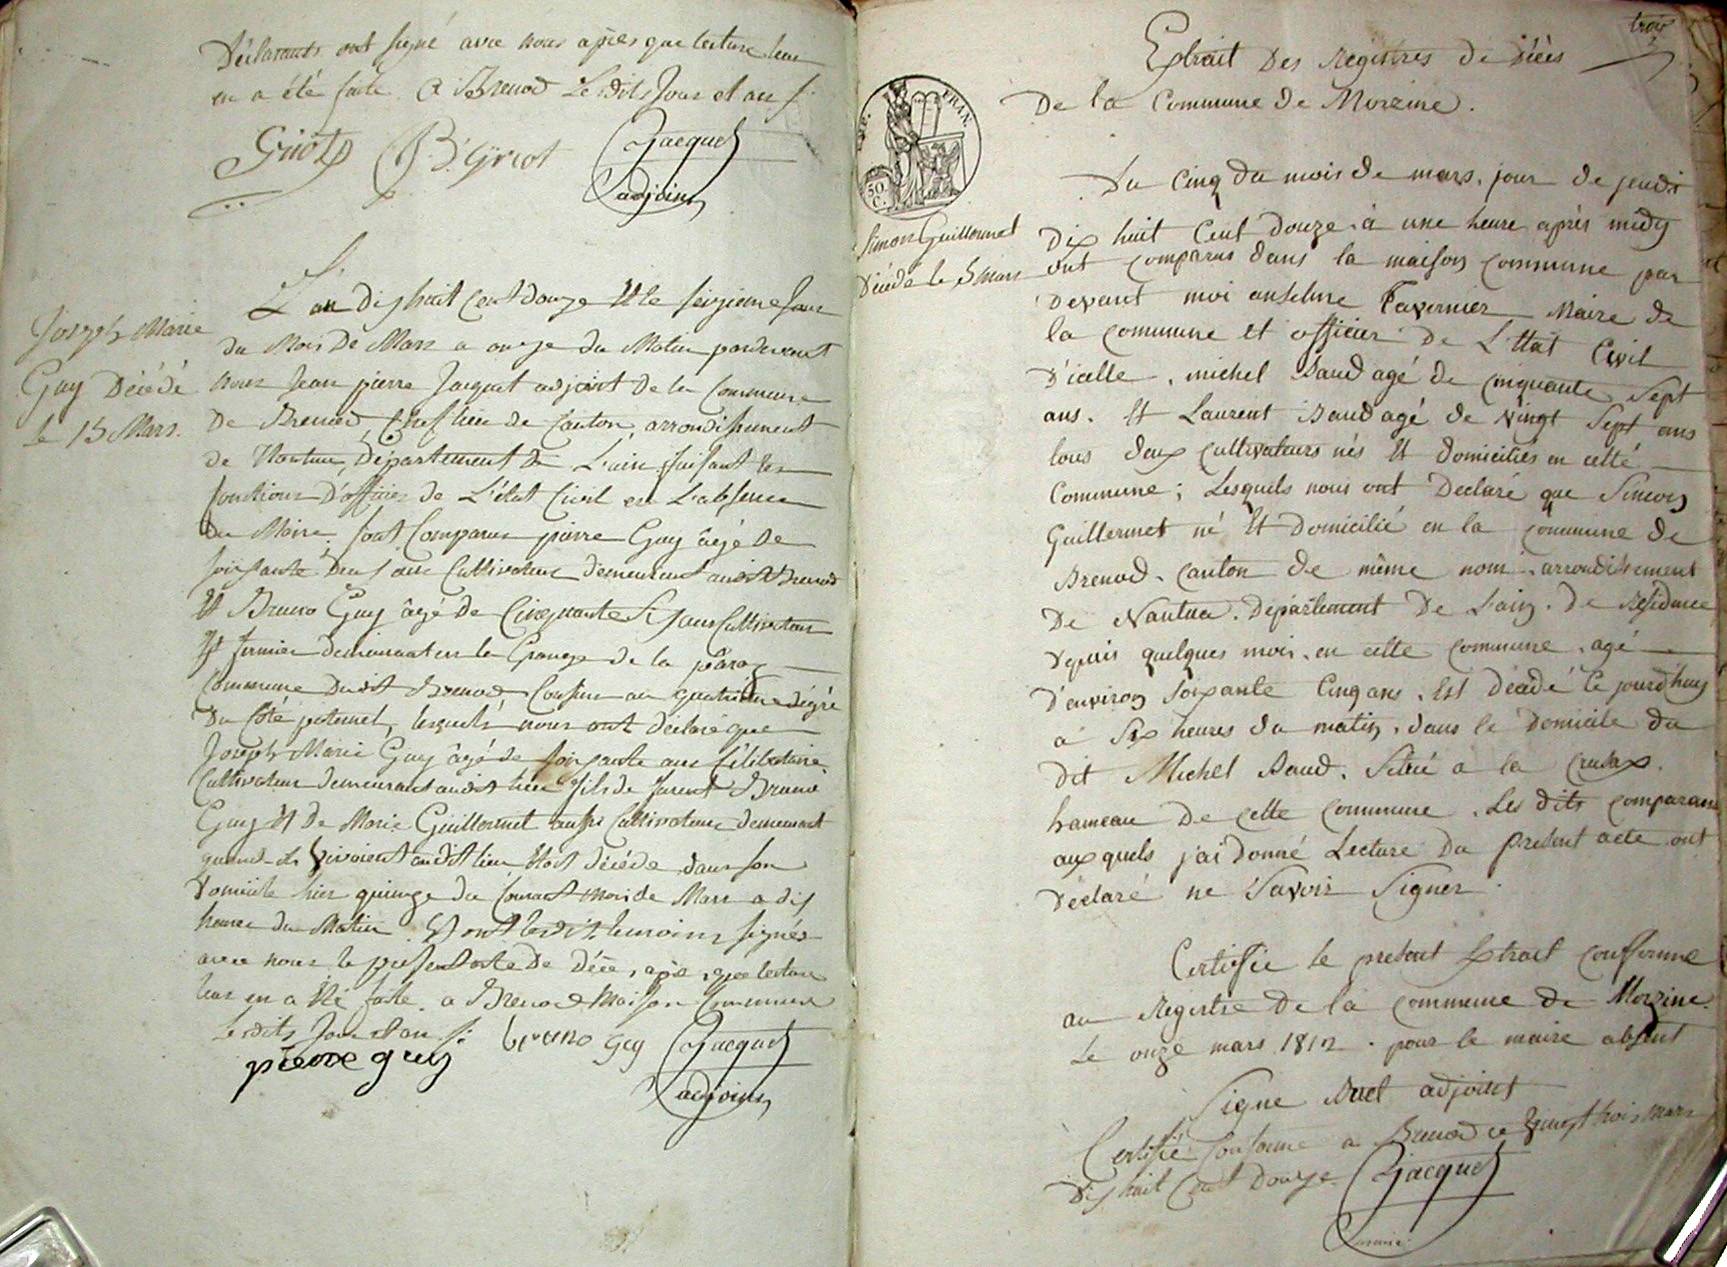 Déclarants ont signé avec nous après que lecture leur
en a été faite. A Brenod Les dits Jour et an
Griot B. Griot Jacquet
adjoint
Joseph Marie
Guy Décédé
le 15 Mars.
L'an dix huit cent douze Et le seizieme Jour
du Mois De Mars a onze du Matin pardevant
nous Jean pierre Jacquet adjoint de la Commune
De Brenod, Chef lieu de Canton, arrondissement
de Nantua, Département de L'ain faisant les
fonctions D'officier de L'état Civil en L'absence
du Maire. sont Comparus pierre Guy âgé de
soixante deux ans Cultivateur demeurant audit Brenod
Et Bruno Guy âgé de Cinquante Six ans Cultivateur
Et fermier demeurant en la Grange de la
Commune Dudit Brenod Cousins au quatrieme dégré
Du Coté paternel, lesquels nous ont déclaré que
Joseph Marie Guy âgé de soixante ans Célibataire,
Cultivateur demeurant audit lieu fils de Bruno
Guy Et De Marie Guillermet aussi Cultivateurs demeurant
quand ils vivoient audit lieu Etoit décédé dans son
Domicile hier quinze du Courant mois de Mars a dix
heures du Matin. Et ont lesdits temoins signés
avec nous le present acte De Décé, après que lecture
leur en a été faite. a Brenod Maison Commune
Lesdits Jour et an
pierre guy bruno guy Jacquet
adjoint
Extrait Des Registres de Décès
De la Commune de Morzine.
EMP. FRAN.
50
C.
Simon Guillermet
Décédé le 5 mars
Du Cinq du mois de mars, jour de jeudi
Dix huit Cent Douze, à une heure après midy
ont comparus dans la maison commune par
Devant moi anselme Tavernier Maire de
la commune et officier de L'Etat Civil
D'icelle, michel Baud agé de cinquante Sept
ans. Et Laurent Baud agé de Vingt Sept ans
tous deux cultivateurs nés Et domiciliés en cette
Commune; Lesquels nous ont Declaré que Simon
Guillermet né Et Domicilié en la commune de
Brenod. Canton de même nom. arrondissement
De Nantua. Departement De L'ain. De Residence
Depuis quelques mois. en cette commune. agé
D'environ Soixante Cinq ans. Est décedé Ce jourd'huy
a Six heures du matin, dans le Domicile du
dit Michel Baud. Situé a la Crusaz.
hameau De cette commune. Les dits comparans
auxquels j'ai Donné Lecture Du Present acte ont
Déclaré ne Savoir Signer.
Certifié le present Extrait conforme
au Registre de la commune de Morzine.
le onze mars 1812. pour le maire absent
Signe adjoint
Certifié Conforme a Brenod ce Vingt trois mars
Dix huit Cent Douze. Jacquet